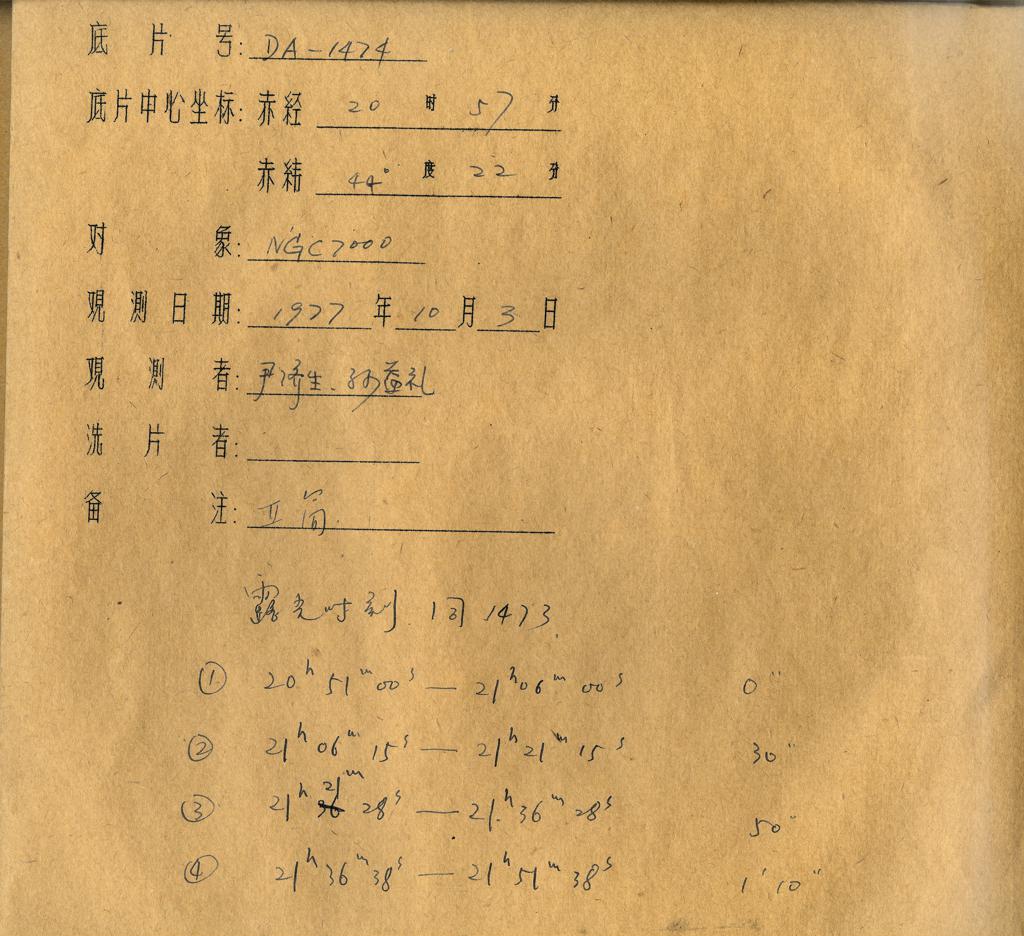 底片号: DA-1474
底片中心坐标: 赤经 20 时 57 分
赤纬 44° 度 22 分
对象: NGC7000
观测日期: 1977 年 10 月 3 日
观测者: 尹济生、孙益礼
洗片者:
备注: 双筒
露光时刻 同 1473
① 20h 51m 00s — 21h 06m 00s 0"
② 21h 06m 15s — 21h 21m 15s 30"
③ 21h 21m 28s — 21h 36m 28s 50"
④ 21h 36m 38s — 21h 51m 38s 1' 10"